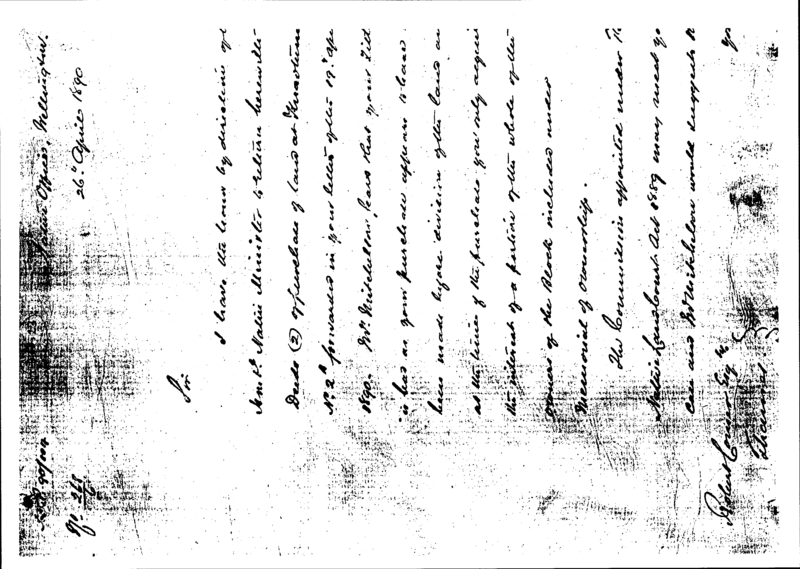 Native Office, Wellington.
26th April 1890
No. 268/6
Sir
I have the honor by direction of
Hon. Native Minister to return herewith
Deeds (2) of purchase of land at
No 2A forwarded in your letter of the 19th Ap
1890. Mr. Mitchelson fears that your titl
is bad as your purchase appears to have
been made before division of the land as
at the time of the purchase you only acqui
the interest of a portion of the whole of the
owners of the Block included under
Memorial of Ownership.
The Commission appointed under Th
Native Land Court Act 1889 may meet yo
case and Mr Mitchelson would suggest t
yo
Robert Comer Esqre
Thames